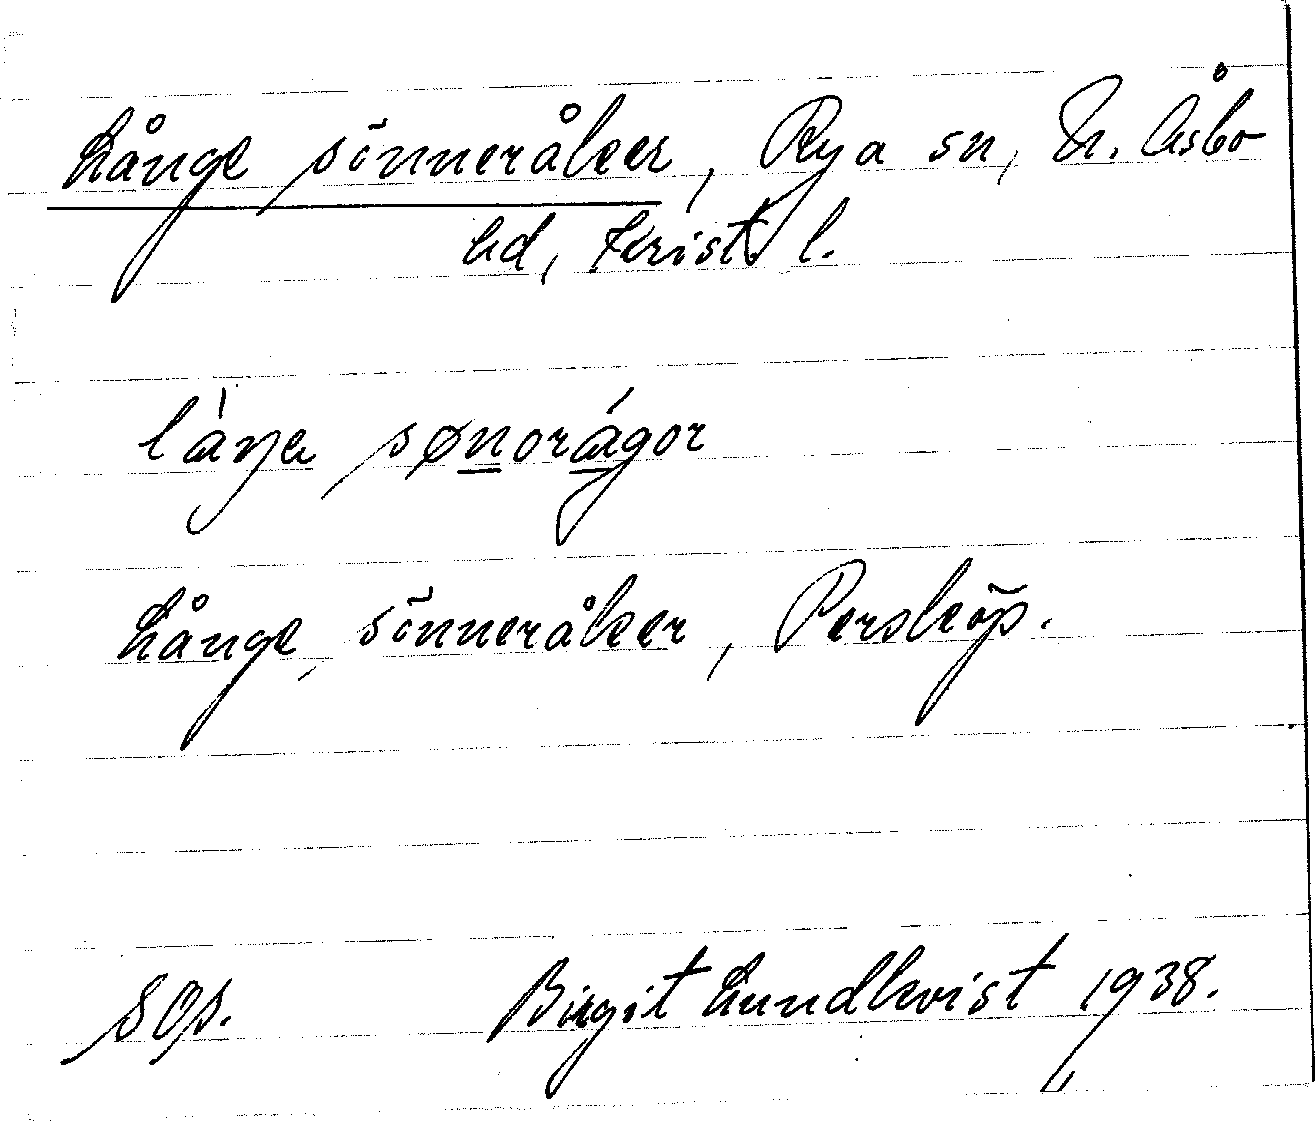 Långe sönneråker, Rya sn, N. Åsbo
hd, Krist. l.
låŋa sønorágor
Långe sönneråker, Persköp.
SOp. Birgit Lundkvist 1938.